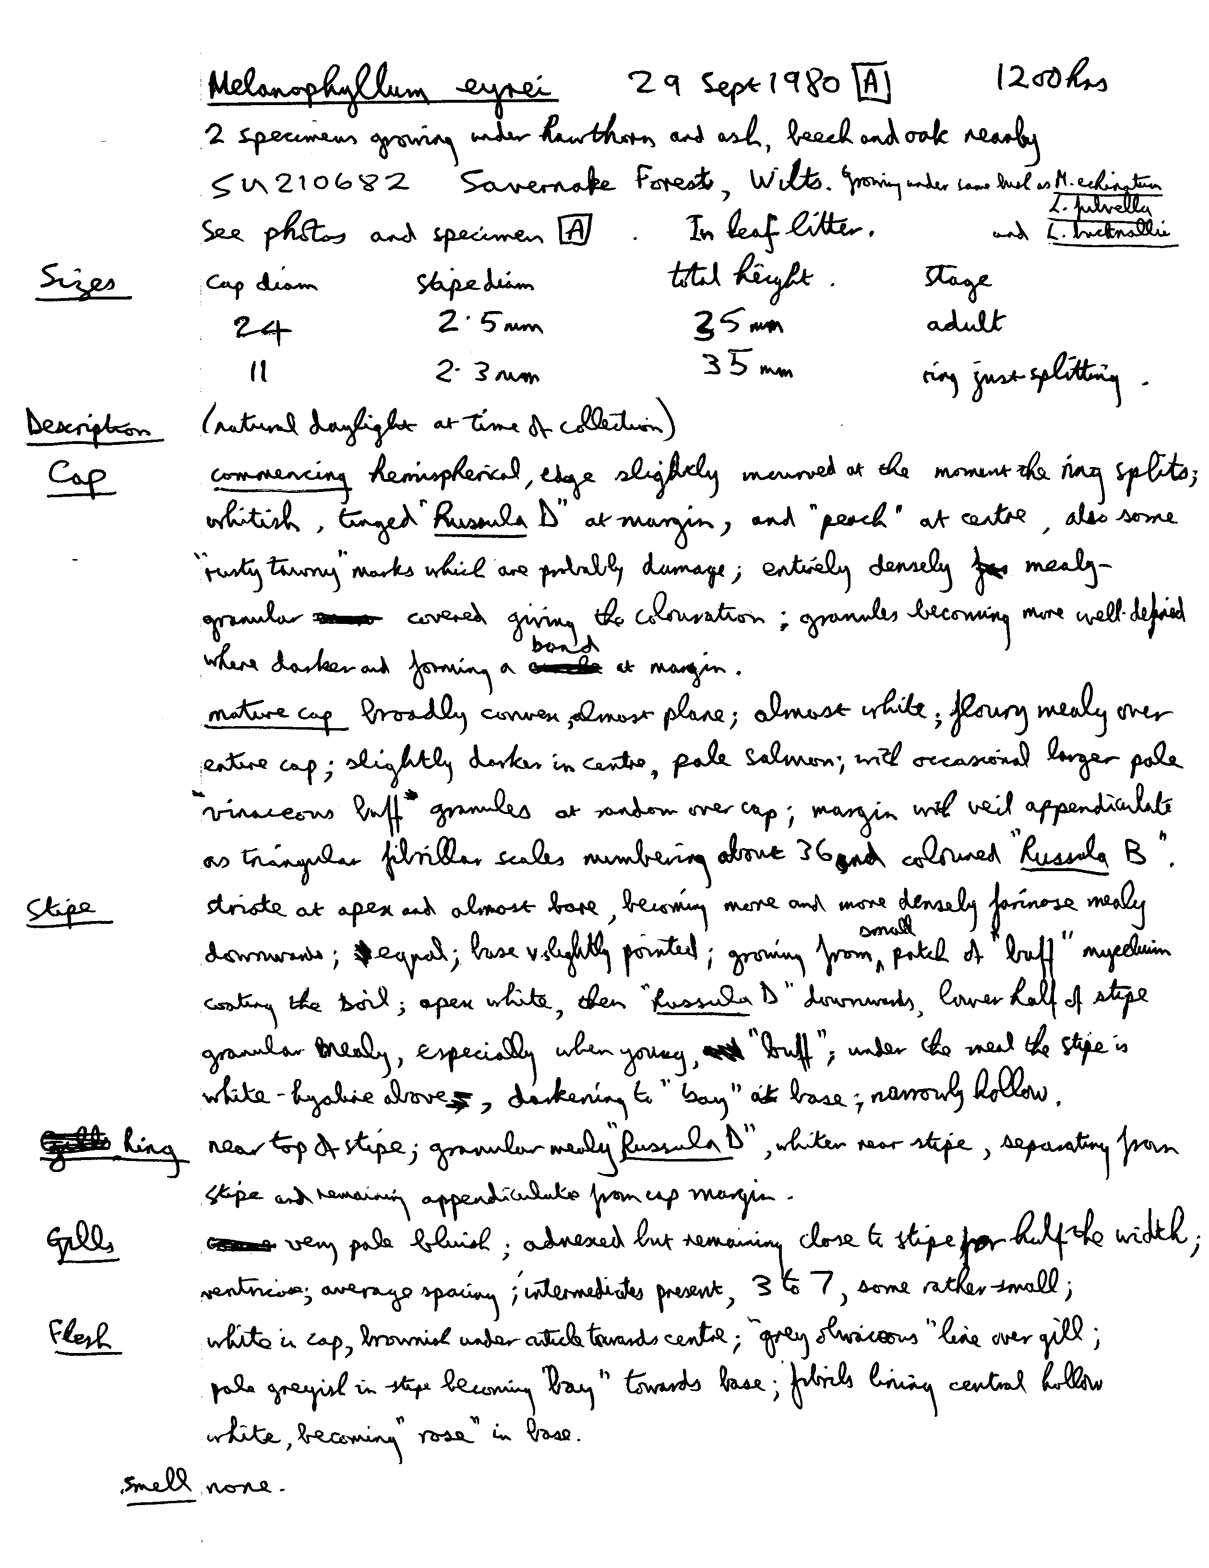 Melanophyllum eyrei 29 Sept 1980 A 1200 hrs
2 specimens growing under hawthorn and ash, beech and oak nearby
SU210682 Savernake Forest, Wilts. Growing under same bush as M. echinatum
L. pulvella
See photos and specimen A . In leaf litter. and L. bucknallii
Sizes cap diam stipe diam total height. stage
24 2.5 mm 35 mm adult
11 2.3 mm 35 mm ring just splitting.
Description (natural daylight at time of collection)
Cap commencing hemispherical, edge slightly incurved at the moment the ring splits;
whitish, tinged "Russula D" at margin, and "peach" at centre, also some
"rusty tawny" marks which are probably damage; entirely densely mealy-
granular covered giving the colouration; granules becoming more well-defined
where darker and forming a band at margin.
mature cap broadly convex, almost plane; almost white; floury mealy over
entire cap; slightly darker in centre, pale salmon; with occasional larger pale
"vinaceous buff" granules at random over cap; margin with veil appendiculate
as triangular fibrillar scales numbering about 36 and coloured "Russula B".
Stipe striate at apex and almost bare, becoming more and more densely farinose mealy
downwards; equal; base v slightly pointed; growing from small patch of "buff" mycelium
coating the soil; apex white, then "Russula D" downwards, lower half of stipe
granular mealy, especially when young, "buff"; under the meal the stipe is
white-hyaline above, darkening to "bay" at base; narrowly hollow.
Ring near top of stipe; granular mealy "Russula D", whiter near stipe, separating from
stipe and remaining appendiculate from cap margin.
Gills very pale bluish; adnexed but remaining close to stipe for half the width;
ventricose; average spacing; intermediates present, 3 to 7, some rather small;
Flesh white in cap, brownish under cuticle towards centre; "grey olivaceous" line over gill;
pale greyish in stipe becoming "bay" towards base; fibrils lining central hollow
white, becoming "rose" in base.
smell none.